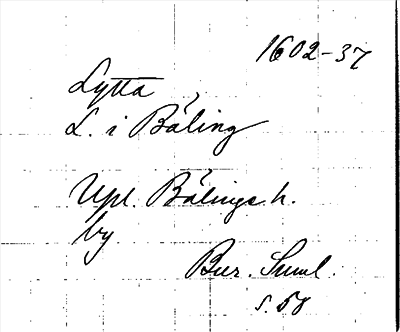 1602-37
Lytta
L. i Båling
Upl. Bälings h.
by
Bur. Suml.
s. 58